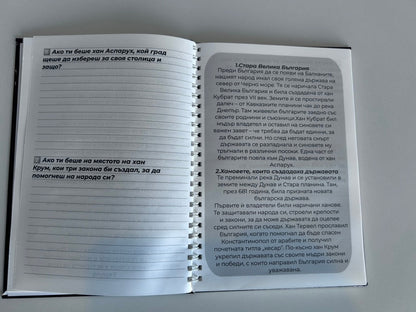 Ако ти беше хан Аспарух, кой град
щеше да избереш за своя столица и
защо?
Ако ти беше на мястото на хан
Крум, кои три закона би създал, за да
помогнеш на народа си?
1.Стара Велика България
Преди България да се появи на Балканите,
нашият народ имал своя голяма държава на
север от Черно море. Тя се наричала Стара
Велика България и била създадена от хан
Кубрат през VII век. Земите ѝ се простирали
далеч – от Кавказките планини чак до река
Днепър. Там живеели българите заедно със
своите роднини и съюзници.Хан Кубрат бил
мъдър владетел и оставил на синовете си
важен завет – че трябва да бъдат единни, за
да бъдат силни. Но след неговата смърт
държавата се разпаднала и синовете му
тръгнали в различни посоки. Една част от
българите поела към Дунав, водена от хан
Аспарух.
2.Хановете, които създадоха държавата
Те преминали река Дунав и се установили в
земите между Дунав и Стара планина. Там,
през 681 година, била призната новата
българска държава.
Първите ѝ владетели били наричани ханове.
Те защитавали народа си, строели крепости
и закони, за да може държавата да оцелее
сред силните си съседи. Хан Тервел прославил
България, когато помогнал да бъде спасен
Константинопол от арабите и получил
почетната титла „кесар“. По-късно хан Крум
укрепил държавата със своите мъдри закони
и победи, с които направил България силна и
уважавана.